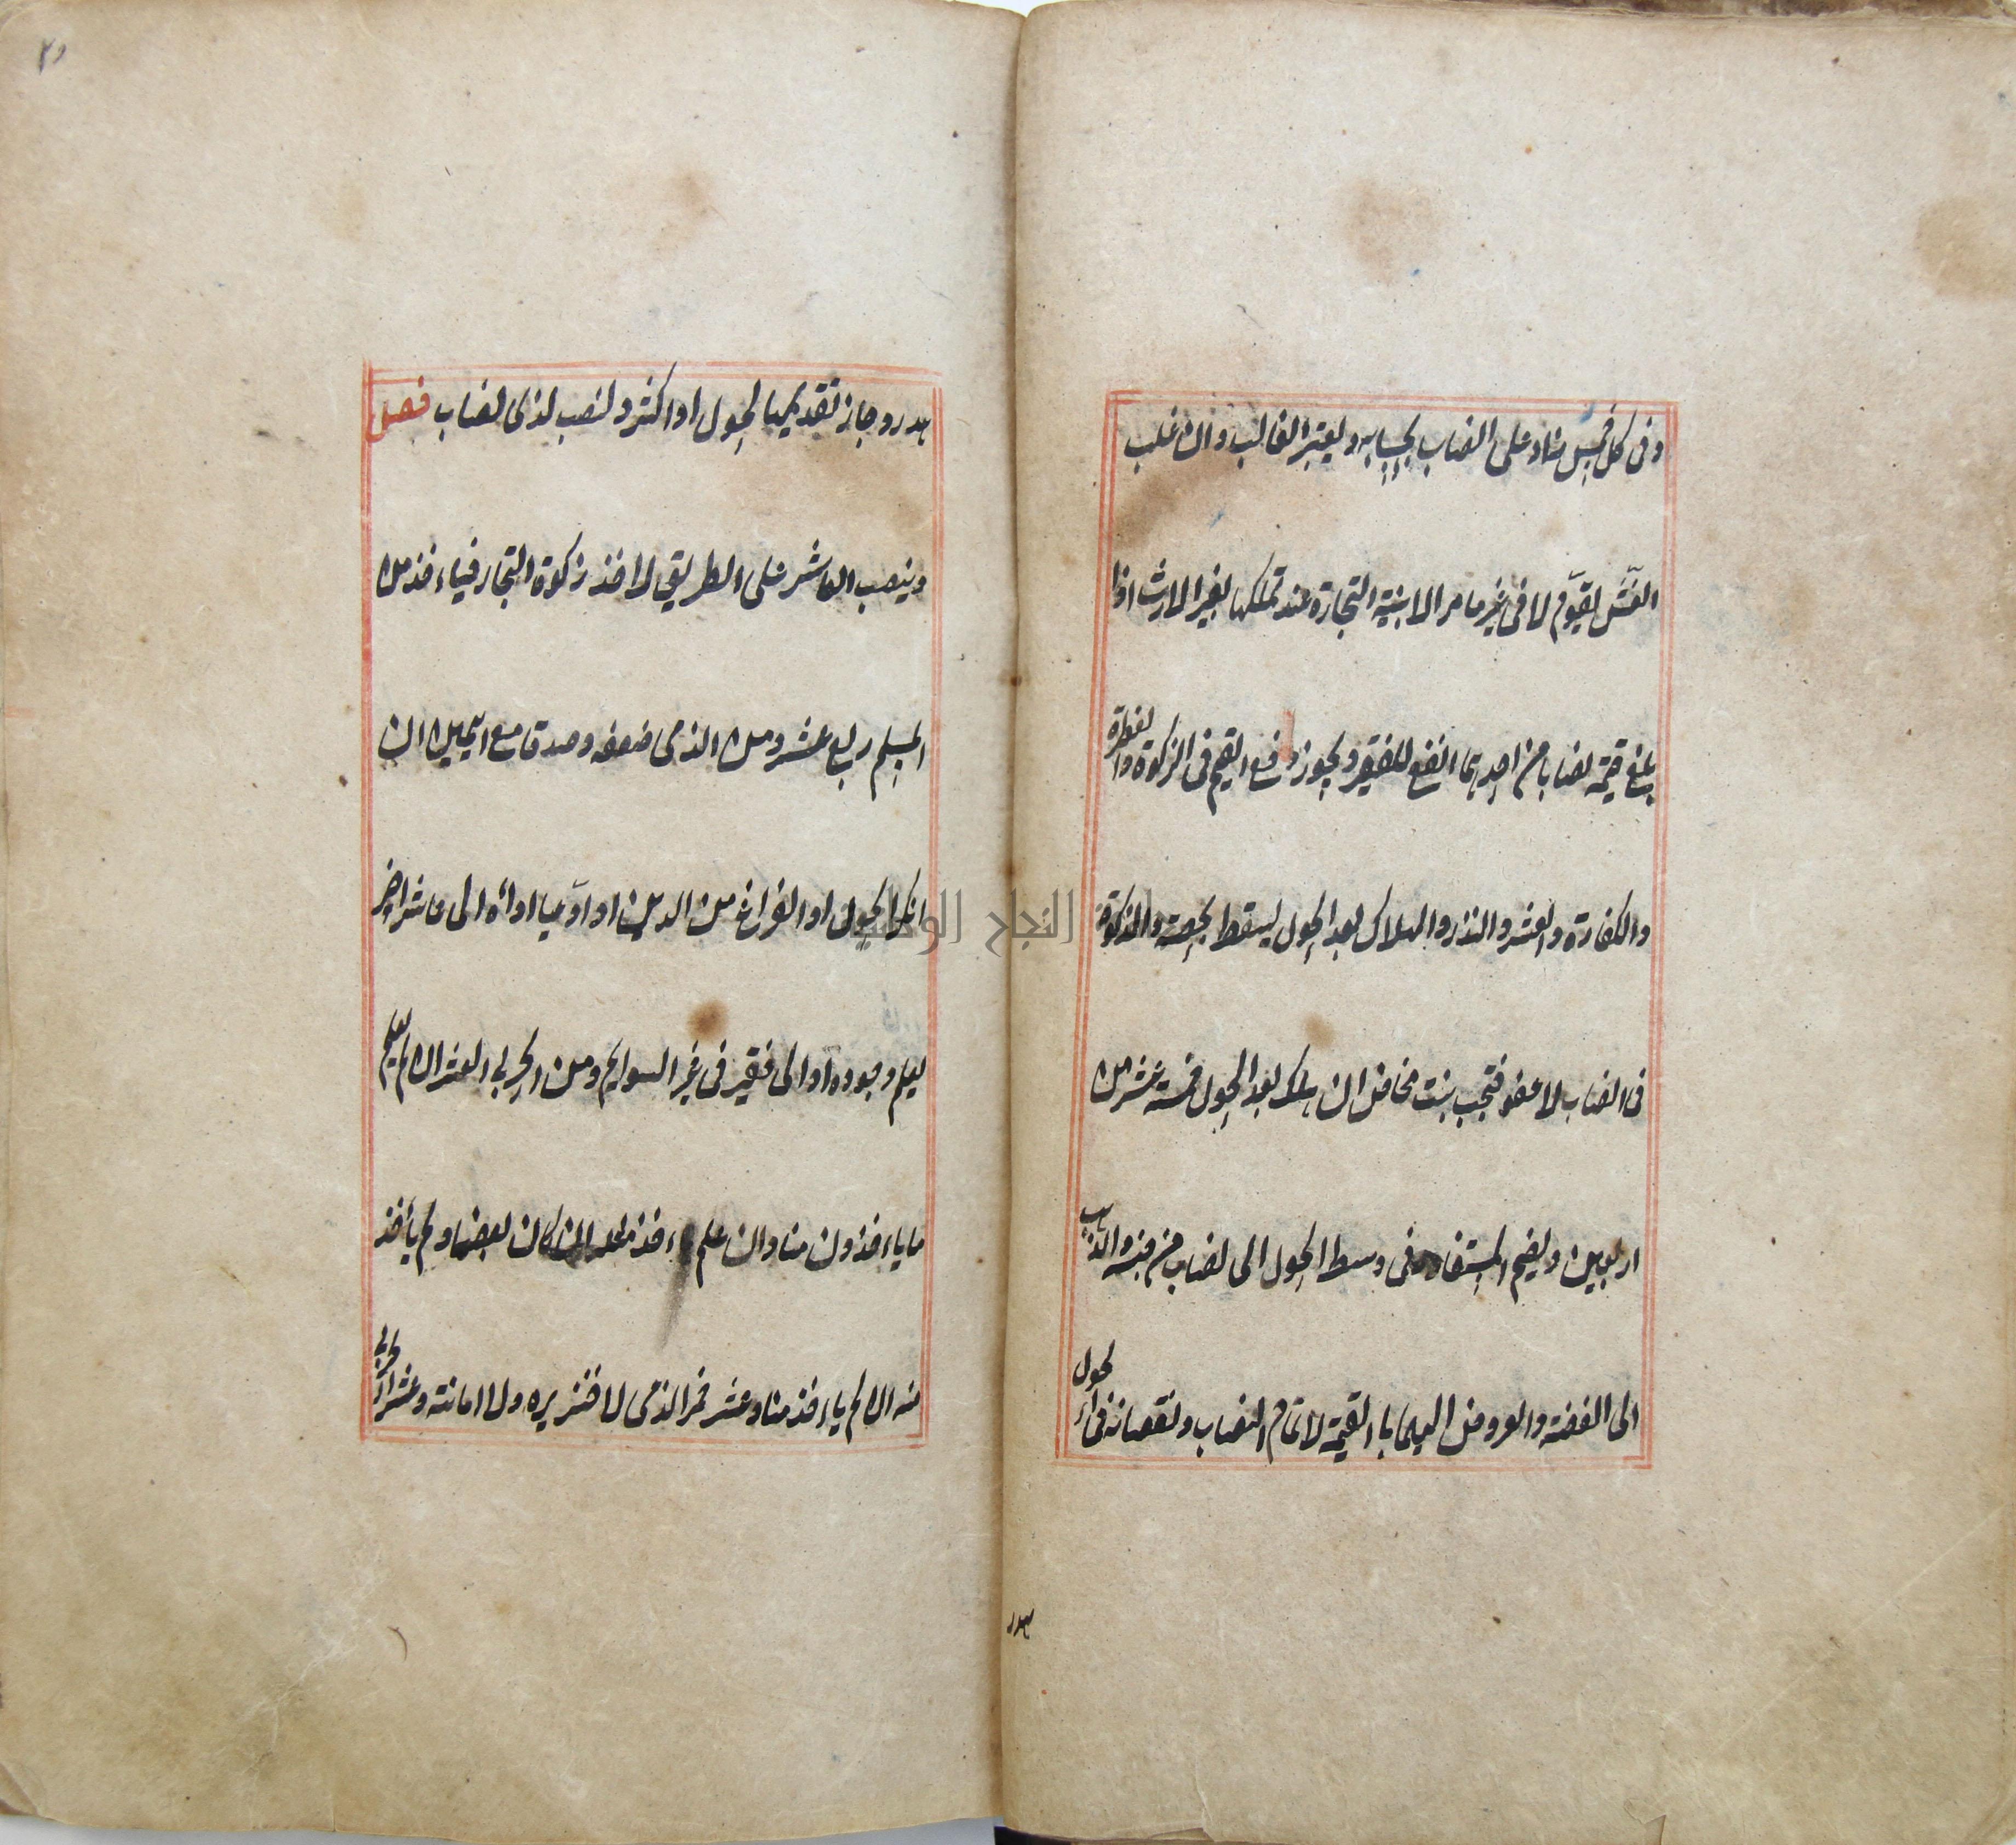 وفى كل خمس زاد على النصاب بحسابه ويعتبر الغالب وان غلب
الغش يقوّم لا فى غير ما مر الا بنية التجارة عند تملكها بغير الارث اذا
بلغ قيمته نصابا من احدهما انفع للفقير ويجوز دفع القيم فى الزكوة والفطرة
والكفارة والعشر والنذر والهلاك بعد الحول يسقط بحصته والزكوة
فى النصاب لا عفو فتجب بنت مخاض ان هلك بعد الحول خمسة عشر من
اربعين ويضم المستفاد فى وسط الحول الى نصاب من جنسه والذهب
الى الفضة والعروض اليهما با القيمة لاتمام النصاب ونقصانه فى الحول
هدر
٢٥
هدر وجاز تقديمها لحول او اكثر ولنصب لذى نصاب فصل
وينصب العاشر على الطريق لاخذ زكوة التجار فياءخذ من
المسلم ربع عشر ومن الذمى ضعفه وصدقا مع اليمين ان
انكرا الحول او الفراغ من الدين او ادّعيا اداءه الى عاشر اخر
يعلم وجوده او الى فقير فى غير السوايم ومن الحربى العشر ان لم يعلم
ما ياءخذون منا وان علم اءخذ مثله ان كان بعضا ولم يأخذ
منه ان لم ياءخذ منا وعشر خمر الذمى لا خنزيره ولا امانته وعشر الحربى
النجاح الوطنية